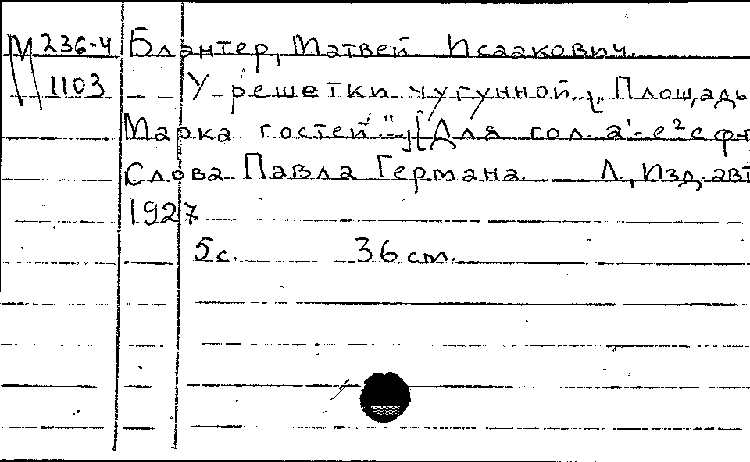 М 236-4 Блантер, Матвей Исаакович.
1103 У решетки чугунной. („Площадь
Марка гостей") [Для гол. а'-е² с ф-
Слова Павла Германа. Л., Изд. авт
1927
5с. 36 см.